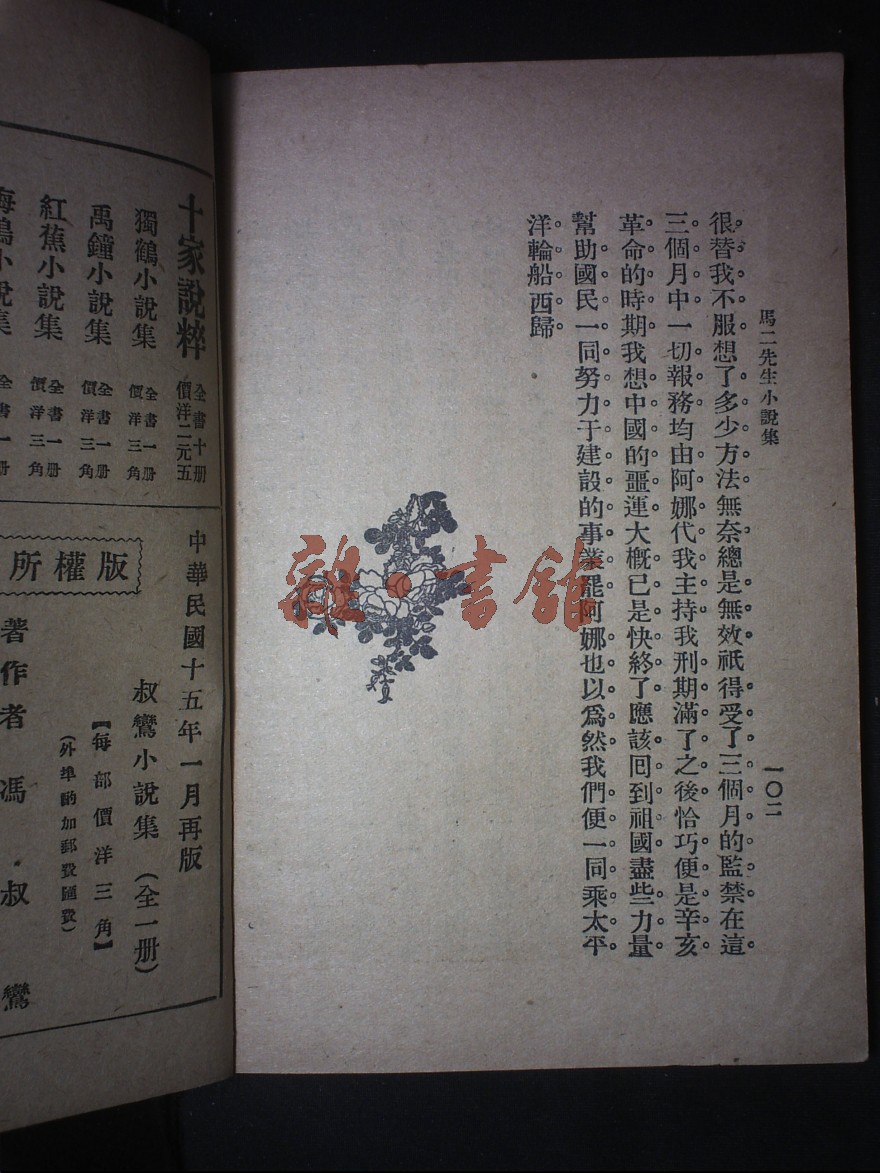 馬二先生小說集
一〇二
很替我不服。想了多少方法。無奈總是無效。祇得受了三個月的監禁。在這
三個月中。一切報務。均由阿娜代我主持。我刑期滿了之後。恰巧便是辛亥
革命的時期。我想中國的噩運。大概已是快終了。應該囘到祖國。盡些力量。
幫助國民。一同努力于建設的事業罷。阿娜也以爲然。我們便一同乘太平
洋輪船西歸。
雜·書館
十家說粹
全書十册
價洋二元五
獨鶴小說集
全書一册
價洋三角
禹鐘小說集
全書一册
價洋三角
紅蕉小說集
全書一册
價洋三角
海鳴小說集
全書一册
中華民國十五年一月再版
叔鸞小說集(全一册)
【每部價洋三角】
(外埠酌加郵費匯費)
版權所
著作者 馮·叔鸞